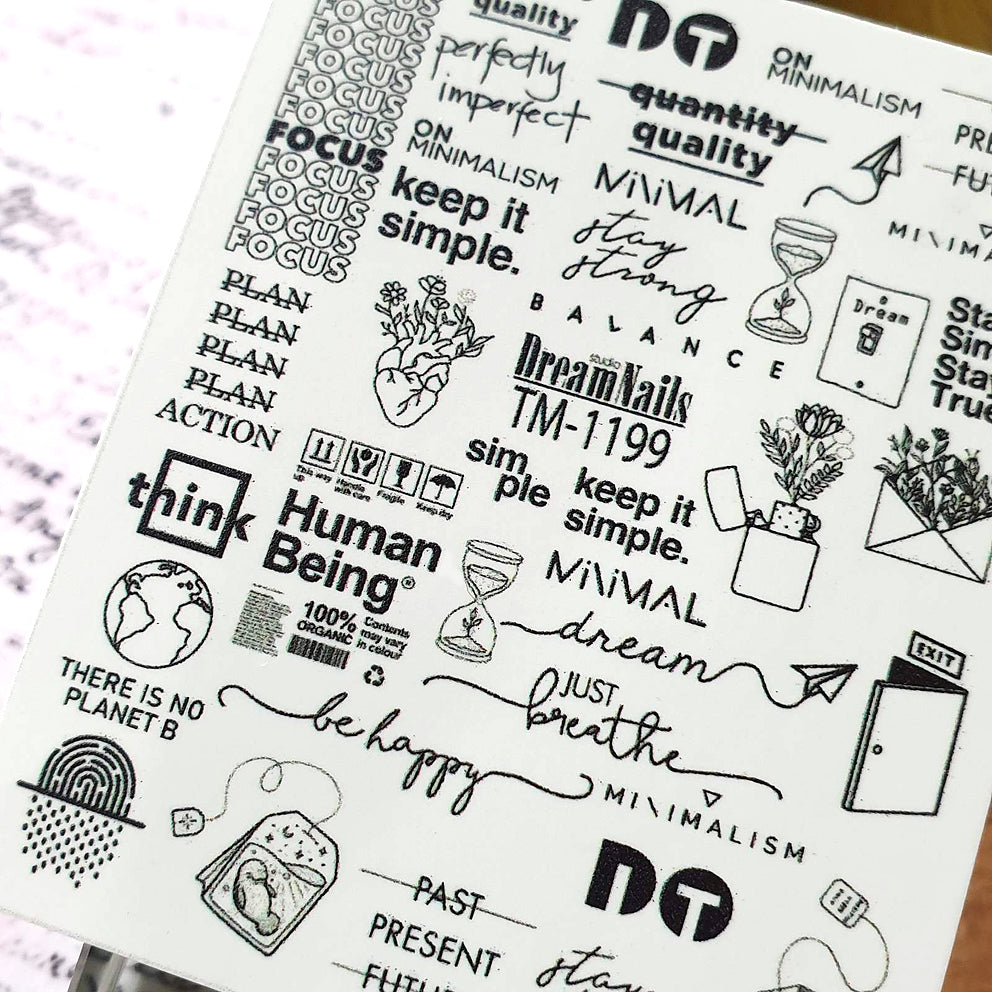 FOCUS
FOCUS
FOCUS
FOCUS
FOCUS
FOCUS
FOCUS
FOCUS
FOCUS
FOCUS
FOCUS
PLAN
PLAN
PLAN
PLAN
ACTION
quality
perfectly
imperfect
ON
MINIMALISM
keep it
simple.
ON
MINIMALISM
quantity
quality
MiniMAL
stay
strong
BALANCE
Dream
studio
DreamNails
TM-1199
sim
ple
keep it
simple.
MiniMAL
think
This way up
Handle with care
Fragile
Keep dry
Human
Being®
100%
ORGANIC
Contents
may vary
in colour
THERE IS NO
PLANET B
dream
EXIT
JUST
breathe
be happy
MINIMALISM
PAST
PRESENT
stay